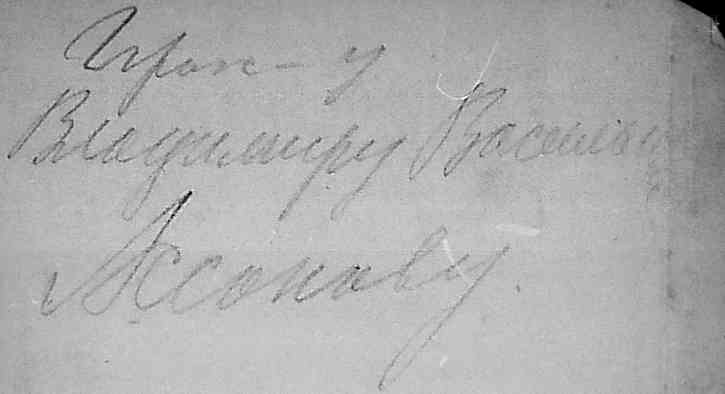 Граж-у
Владимиру Васильеви
Аксонову.